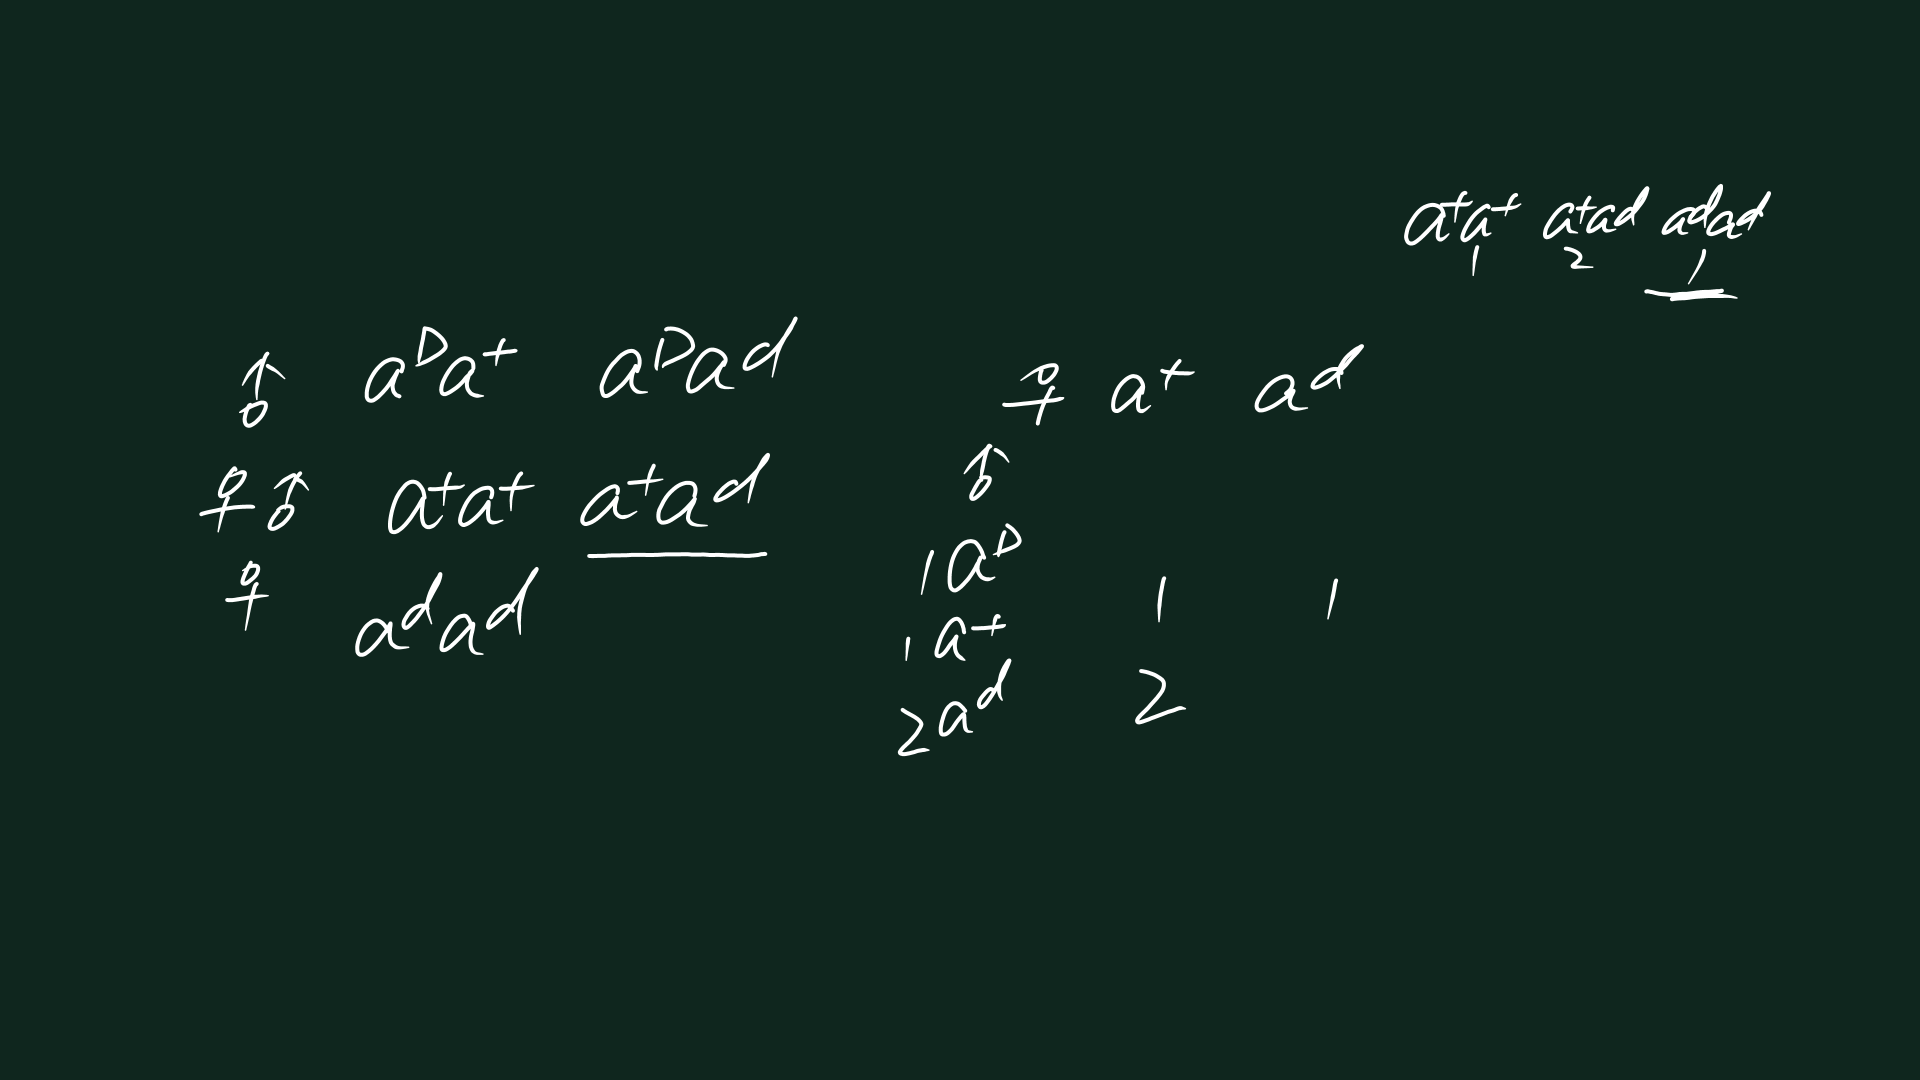 a⁺a⁺ a⁺aᵈ aᵈaᵈ
1 2 1
♂ aᴰa⁺ aᴰaᵈ
♀♂ a⁺a⁺ a⁺aᵈ
♀ aᵈaᵈ
♀ a⁺ aᵈ
♂
1aᴰ
1a⁺ 1 1
2aᵈ 2